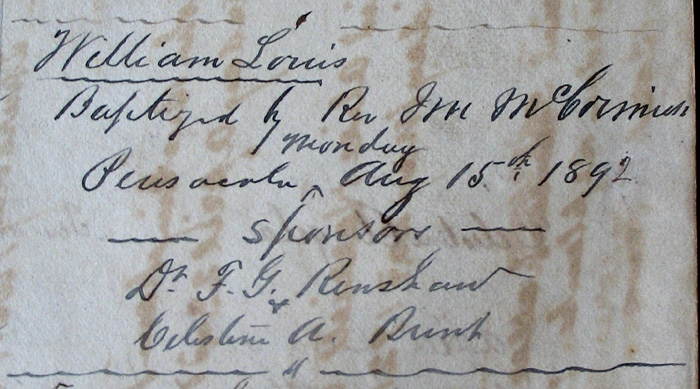 William Louis
Baptized by Rev Jm McCormick
Monday
Pensacola ^ Aug 15th 1892
— Sponsors —
Dr F. G. Renshaw
&
Celestine A. Brent
"